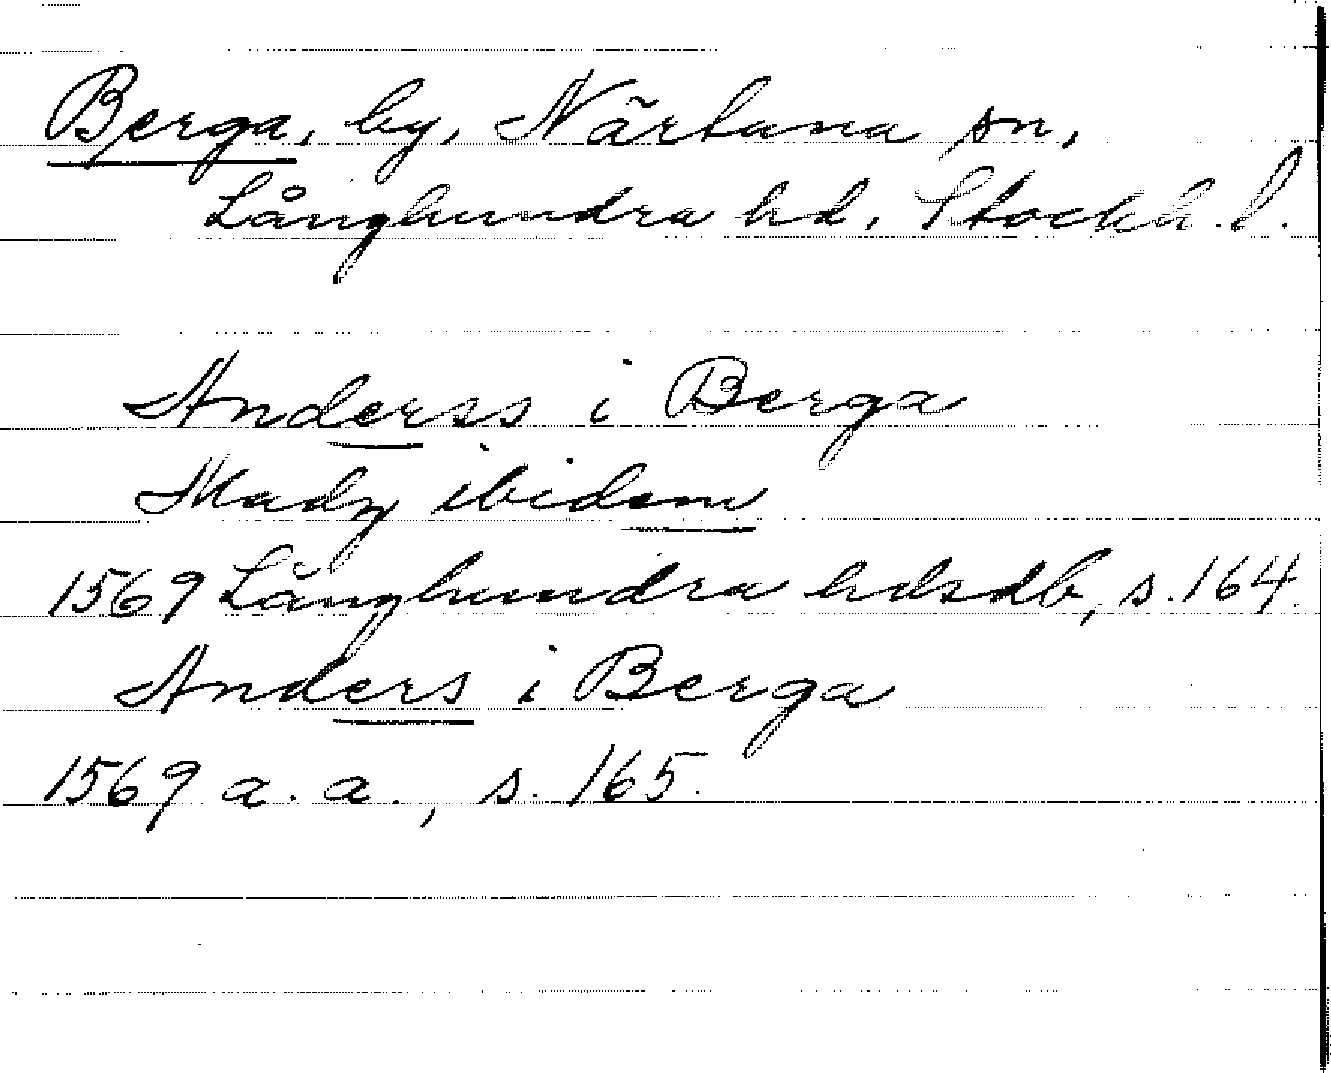 Berga, by, Närtuna sn,
Långhundra hd, Stockh. l.
Anderss i Berga
Madz ibidem
1569 Långhundra hdsdb, s. 164.
Anders i Berga
1569 a. a., s. 165.